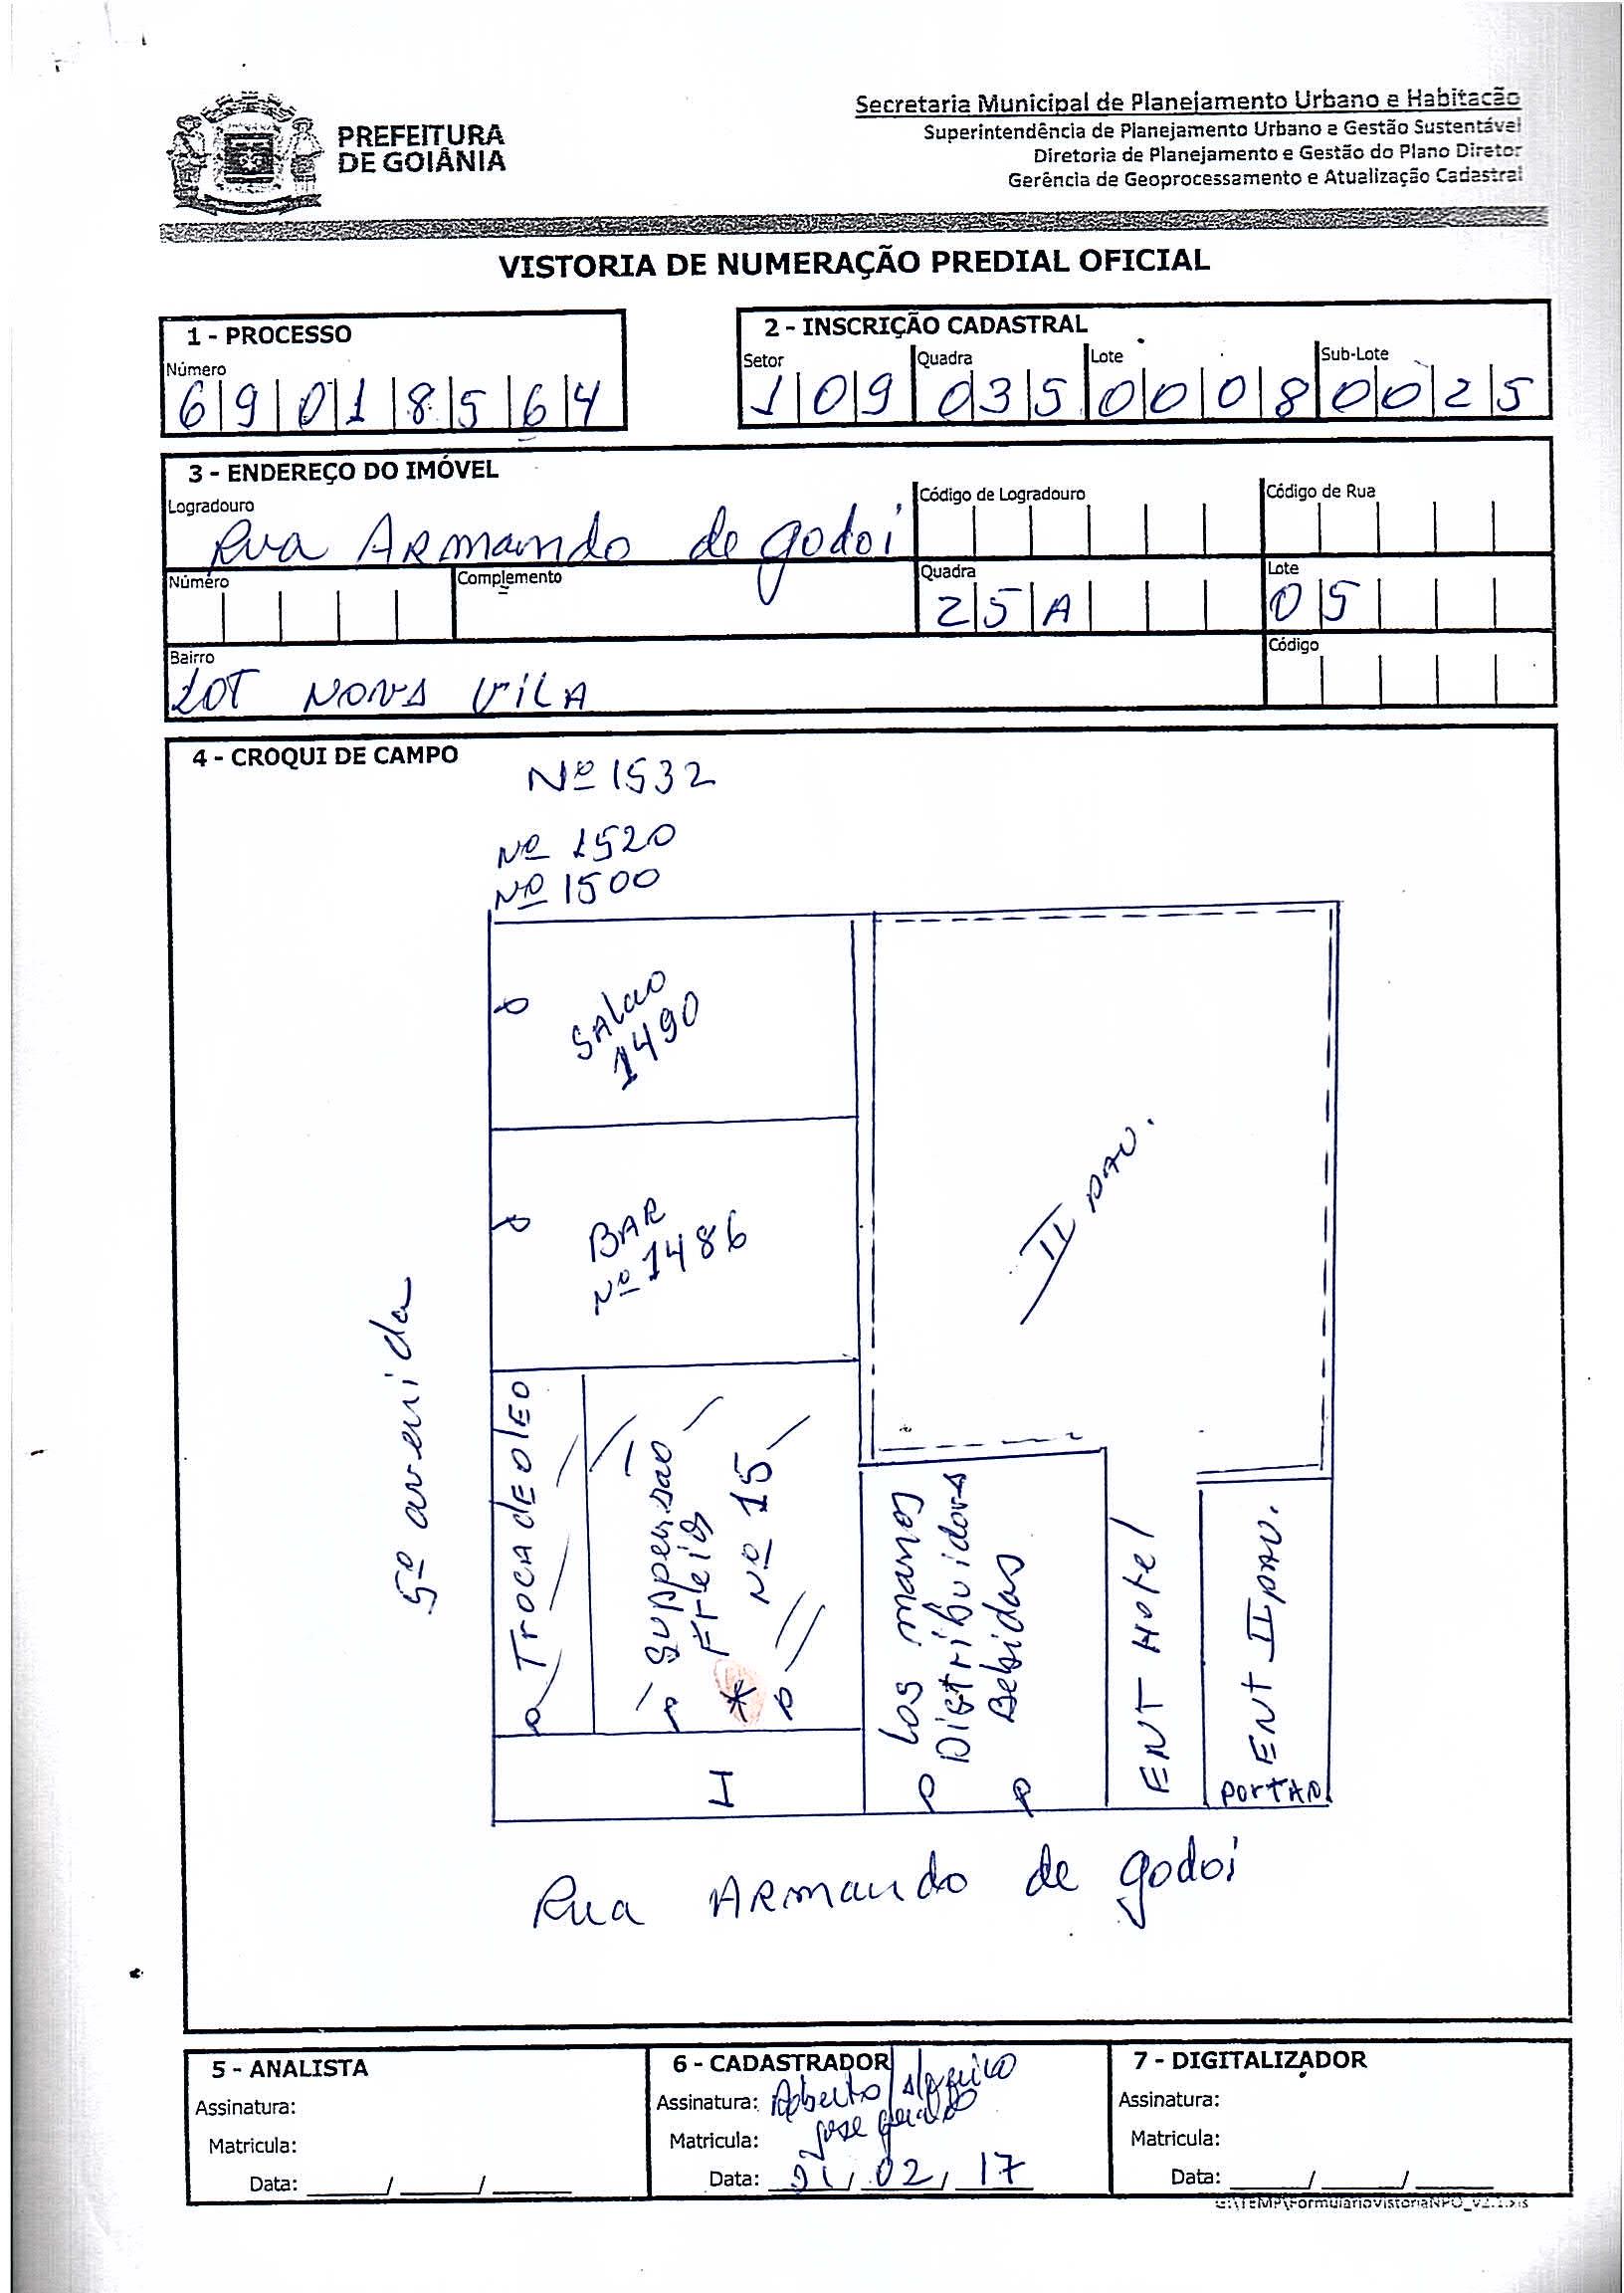 PREFEITURA
DE GOIÂNIA
Secretaria Municipal de Planejamento Urbano e Habitação
Superintendência de Planejamento Urbano e Gestão Sustentável
Diretoria de Planejamento e Gestão do Plano Diretor
Gerência de Geoprocessamento e Atualização Cadastral
VISTORIA DE NUMERAÇÃO PREDIAL OFICIAL
1 - PROCESSO
Número
69018564
2 - INSCRIÇÃO CADASTRAL
Setor Quadra Lote Sub-Lote
109 035 0008 0025
3 - ENDEREÇO DO IMÓVEL
Logradouro Código de Logradouro Código de Rua
Rua ARmando de godoi
Número Complemento Quadra Lote
25A 05
Bairro Código
LOT NOVA VILA
4 - CROQUI DE CAMPO
Nº 1532
Nº 1520
Nº 1500
SAlao
1490
BAR
Nº 1486
II PAV.
5º avenida
TROCA dE OlEO
Suppensao
Freios
Nº 15
*
I
Los manos
Distribuidora
Bebidas
ENT HOtel
ENT II PAV.
PortAO
Rua ARmando de godoi
5 - ANALISTA
Assinatura:
Matricula:
Data: ____/____/____
6 - CADASTRADOR
Assinatura: Roberto
Jose Geraldo
Matricula:
Data: 21/02/17
7 - DIGITALIZADOR
Assinatura:
Matricula:
Data: ____/____/____
G:\TEMP\FormularioVistoriaNPO_v2.1.xls